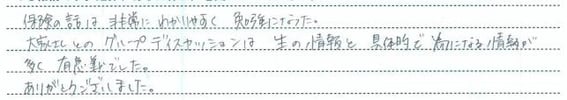 保険の話は非常にわかりやすく勉強になった。
とのグループディスカッションは生の情報と具体的で為になる情報が
多く有意義でした。
ありがとうございました。